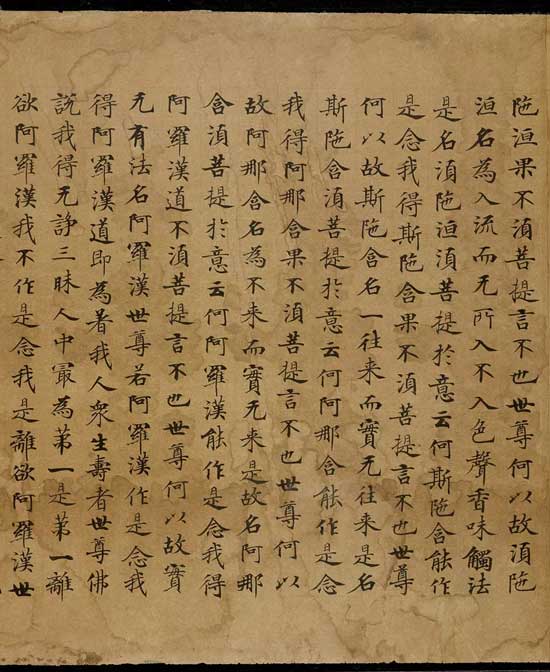 陁洹果不湏菩提言不也世尊何以故湏陁
洹名為入流而无所入不入色聲香味觸法
是名湏陁洹湏菩提於意云何斯陁含能作
是念我得斯陁含果不湏菩提言不也世尊
何以故斯陁含名一往来而實无往来是名
斯陁含湏菩提於意云何阿那含能作是念
我得阿那含果不湏菩提言不也世尊何以
故阿那含名為不来而實无来是故名阿那
含湏菩提於意云何阿羅漢能作是念我得
阿羅漢道不湏菩提言不也世尊何以故實
无有法名阿羅漢世尊若阿羅漢作是念我
得阿羅漢道即為著我人衆生壽者世尊佛
說我得无諍三昧人中㝡為苐一是苐一離
欲阿羅漢我不作是念我是離欲阿羅漢世